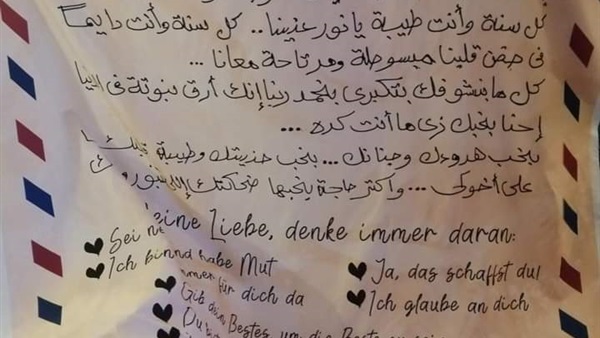 كل سنة وأنت طيبة يا نور عنينا .. كل سنة وأنت دايماً
فى حضن قلبنا مبسوطة ومرتاحة معانا ...
كل ما بنشوفك بتكبرى بنحمد ربنا إنك أرق بنوتة فى الدنيا
إحنا بنحبك زى ما أنت كده ...
بنحب هدوءك وحنانك ... بنحب حنيتك وطيبة قلبك
على أخوكى ... وأكتر حاجة بنحبها ضحكتك اللى
eine Liebe, denke immer daran:
Sei
Ich binnd habe Mut
Ja, das schaffst du!
mmer für dich da
Ich glaube an dich
Gib Bestes, um die Beste
Du